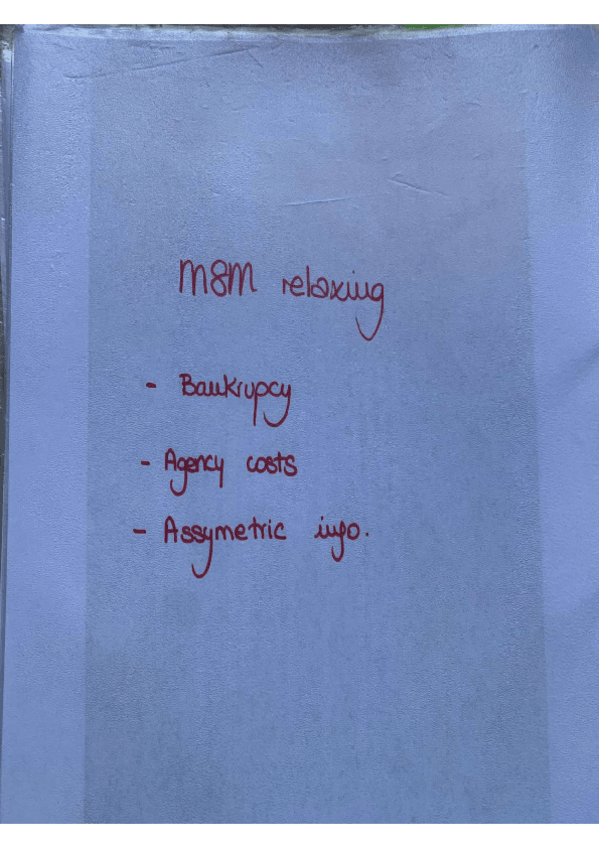 M&M relaxing
- Bankrupcy
- Agency costs
- Assymetric info.